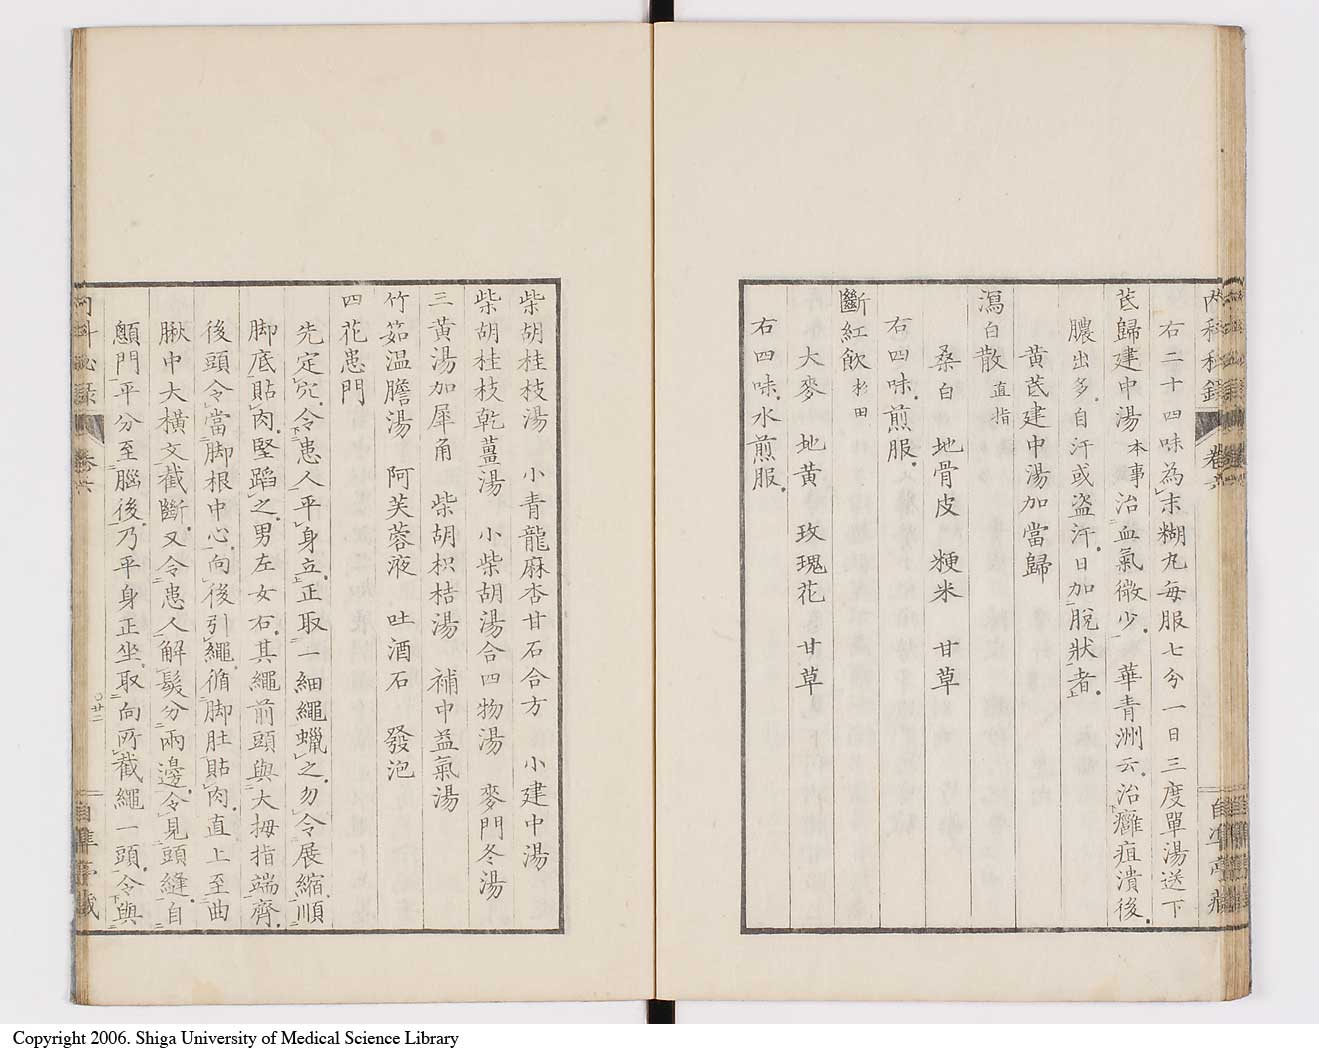 内科秘録 卷六 自準亭藏
右二十四味為末糊丸每服七分一日三度單湯送下
芪歸建中湯 本事治血氣微少 華青洲云治癰疽潰後
膿出多自汗或盜汗日加脫狀者
黃芪建中湯加當歸
瀉白散 直指
桑白 地骨皮 粳米 甘草
右四味煎服
斷紅飲 杉田
大麥 地黃 玫瑰花 甘草
右四味水煎服
柴胡桂枝湯 小青龍麻杏甘石合方 小建中湯
柴胡桂枝乾薑湯 小柴胡湯合四物湯 麥門冬湯
三黃湯加犀角 柴胡枳桔湯 補中益氣湯
竹茹温膽湯 阿芙蓉液 吐酒石 發泡
四花患門
先定穴令患人平身立正取一細繩蠟之勿令展縮順
脚底貼肉堅蹈之男左女右其繩前頭與大拇指端齊
後頭令當脚根中心向後引繩循脚肚貼肉直上至曲
䐐中大橫文截斷又令患人解髮分兩邊令見頭縫自
顖門平分至腦後乃平身正坐取向所截繩一頭令與
内科秘録 卷六 〇廿二 自準亭藏
Copyright 2006. Shiga University of Medical Science Library